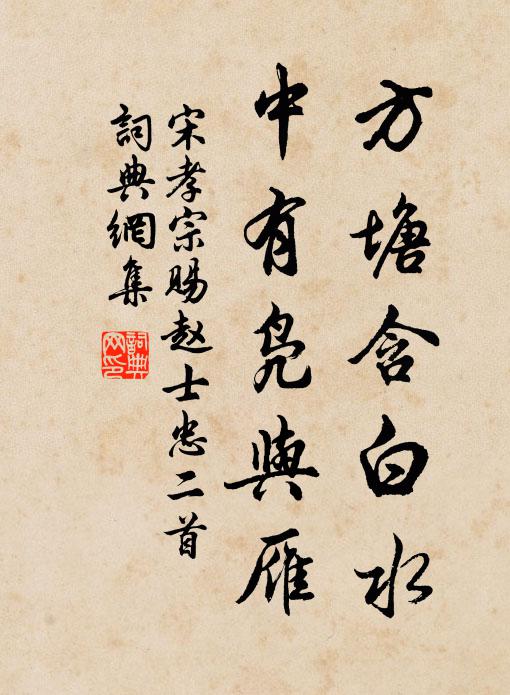 方塘含白水
中有鳬與雁
宋孝宗賜赵士忠二首
詞典網集
詞典網印